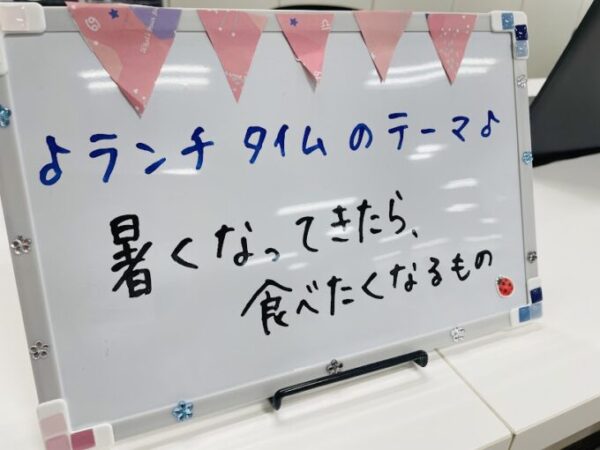 ♪ランチタイムのテーマ♪
暑くなってきたら、
食べたくなるもの